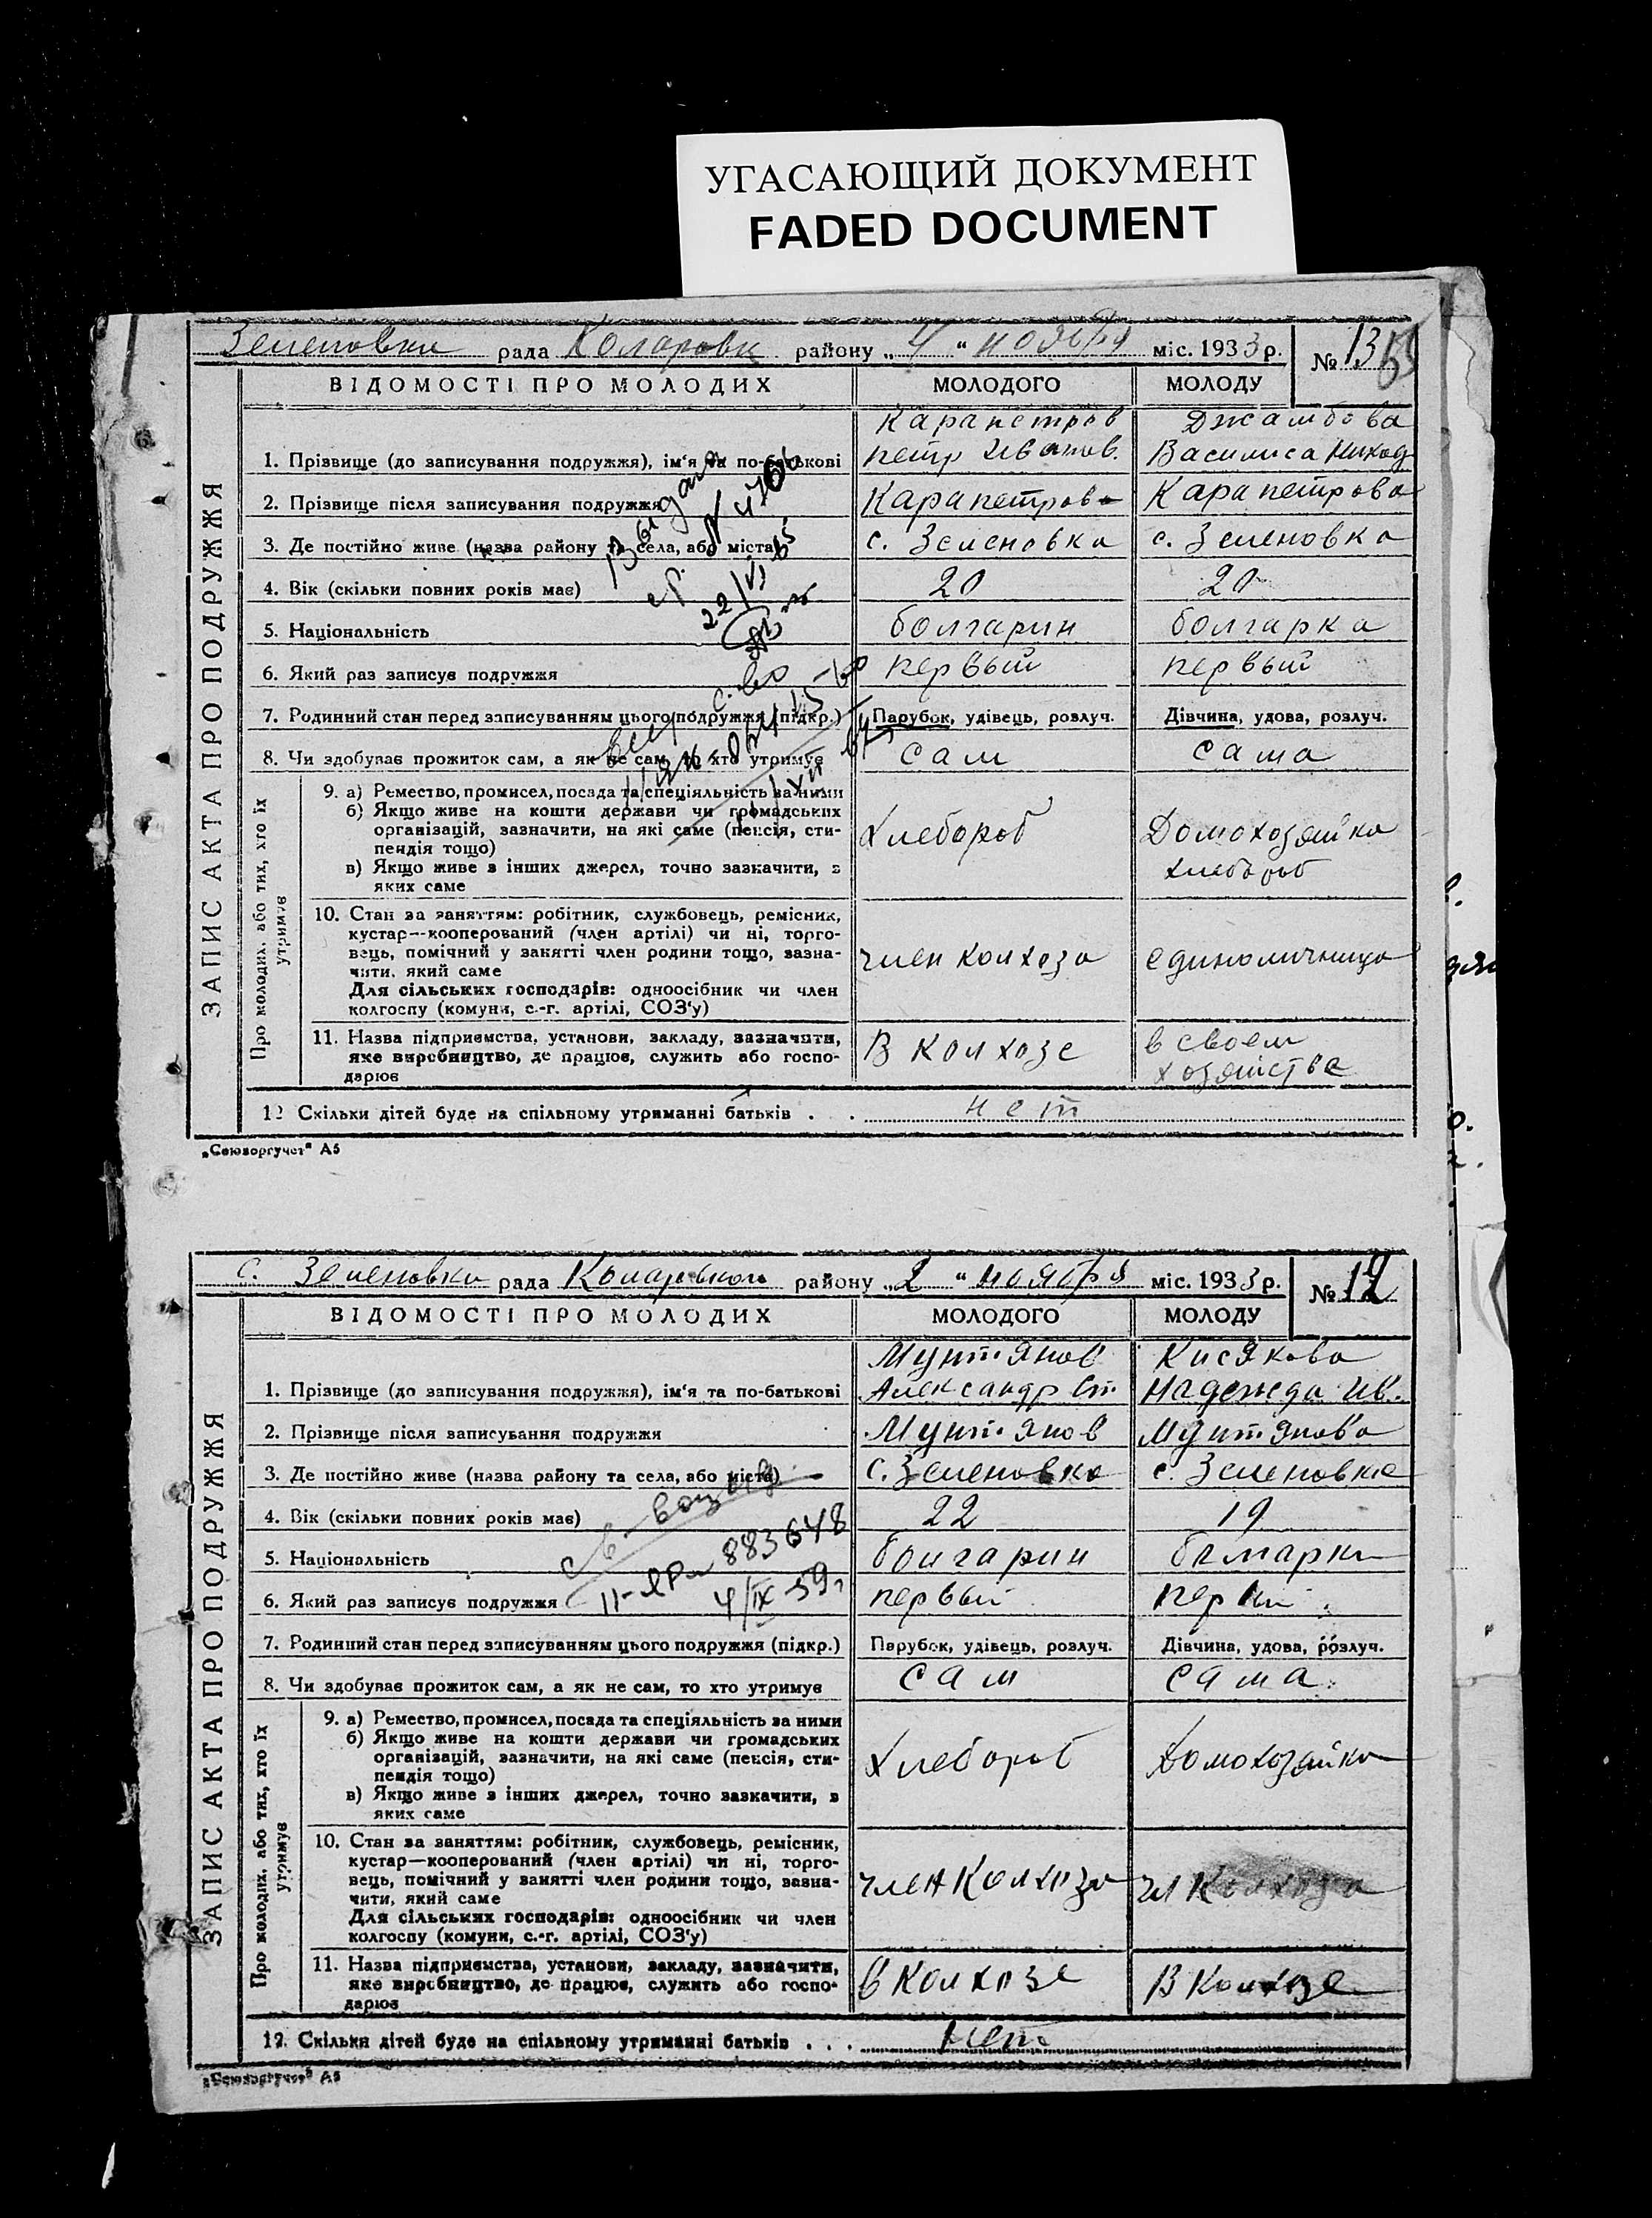 УГАСАЮЩИЙ ДОКУМЕНТ
FADED DOCUMENT
Зеленовка рада Коларовк району „ 4 “ ноября міс. 1933 р. № 13
ВІДОМОСТІ ПРО МОЛОДИХ МОЛОДОГО МОЛОДУ
ЗАПИС АКТА ПРО ПОДРУЖЖЯ
Карапетров Джамбова
1. Прізвище (до записування подружжя), ім'я та по-батькові Петр Иванов. Василиса Никод
2. Прізвище після записування подружжя Карапетров Карапетрова
3. Де постійно живе (назва району та села, або міста) с. Зеленовка с. Зеленовка
4. Вік (скільки повних років має) 20 20
5. Національність болгарин болгарка
6. Який раз записує подружжя первый первый
7. Родинний стан перед записуванням цього подружжя (підкр.) Парубок, удівець, розлуч. Дівчина, удова, розлуч.
8. Чи здобував прожиток сам, а як не сам, то хто утримує сам сама
Про молодих, або тих, хто їх утримує
9. а) Ремество, промисел, посада та спеціяльність за ними
б) Якщо живе на кошти держави чи громадських
організацій, зазначити, на які саме (пенсія, сти-
пендія тощо)
в) Якщо живе з інших джерел, точно зазначити, з
яких саме
Хлебороб Домохозяйка
хлебороб
10. Стан за заняттям: робітник, службовець, ремісник,
кустар—кооперований (член артілі) чи ні, торго-
вець, помічний у занятті член родини тощо, зазна-
чити, який саме
Для сільських господарів: одноосібник чи член
колгоспу (комуни, с.-г. артілі, СОЗ'у)
член колхоза единоличница
11. Назва підприємства, установи, закладу, зазначити,
яке виробництво, де працює, служить або госпо-
дарює
В колхозе в своем
хозяйстве
12 Скільки дітей буде на спільному утриманні батьків . . нет
„Союзоргучет“ А5
22/VI 65
с. Зеленовка рада Коларовского району „ 2 “ ноября міс. 1933 р. № 12
ВІДОМОСТІ ПРО МОЛОДИХ МОЛОДОГО МОЛОДУ
ЗАПИС АКТА ПРО ПОДРУЖЖЯ
Мунтянов Кисякова
1. Прізвище (до записування подружжя), ім'я та по-батькові Александр Ст. Надежда Ив.
2. Прізвище після записування подружжя Мунтянов Мунтянова
3. Де постійно живе (назва району та села, або міста) с. Зеленовка с. Зеленовка
4. Вік (скільки повних років має) 22 19
5. Національність болгарин болгарка
6. Який раз записує подружжя первый
7. Родинний стан перед записуванням цього подружжя (підкр.) Парубок, удівець, розлуч. Дівчина, удова, розлуч.
8. Чи здобував прожиток сам, а як не сам, то хто утримує сам сама
883648
4/IX-59
Про молодих, або тих, хто їх утримує
9. а) Ремество, промисел, посада та спеціяльність за ними
б) Якщо живе на кошти держави чи громадських
організацій, зазначити, на які саме (пенсія, сти-
пендія тощо)
в) Якщо живе з інших джерел, точно зазначити, з
яких саме
Хлебороб Домохозяйка
10. Стан за заняттям: робітник, службовець, ремісник,
кустар—кооперований (член артілі) чи ні, торго-
вець, помічний у занятті член родини тощо, зазна-
чити, який саме
Для сільських господарів: одноосібник чи член
колгоспу (комуни, с.-г. артілі, СОЗ'у)
член Колхоза чл Колхоза
11. Назва підприємства, установи, закладу, зазначити,
яке виробництво, де працює, служить або госпо-
дарює
в Колхозе В Колхозе
12. Скільки дітей буде на спільному утриманні батьків . . . нет
„Союзоргучет“ А5